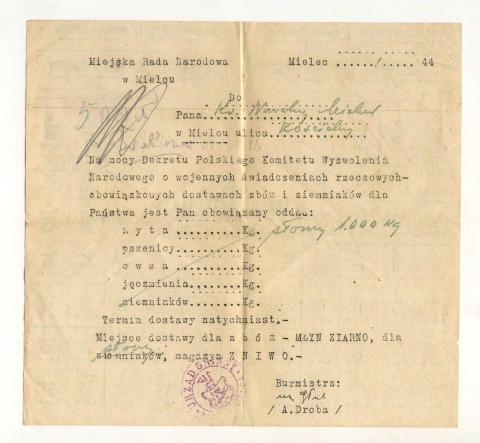 Miejska Rada Narodowa
w Mielcu
Mielec ....../..... 44
Do
Pana Ks.
w Mielcu ulica
Na mocy Dekretu Polskiego Komitetu Wyzwolenia
Narodowego o wojennych świadczeniach rzeczowych-
obowiązkowych dostawach zbóż i ziemniaków dla
Państwa jest Pan obowiązany oddać:
ż y t a ..........Kg. słomy 1.000 Kg
pszenicy..........Kg.
o w s a ..........Kg.
jęczmienia........Kg.
ziemniaków........Kg.
Termin dostawy natychmiast.-
Miejsce dostawy dla z b ó ż - MŁYN ZIARNO, dla
słomy
ziemniaków, magazyn Ż N I W O.-
Burmistrz:
/ A.Droba /